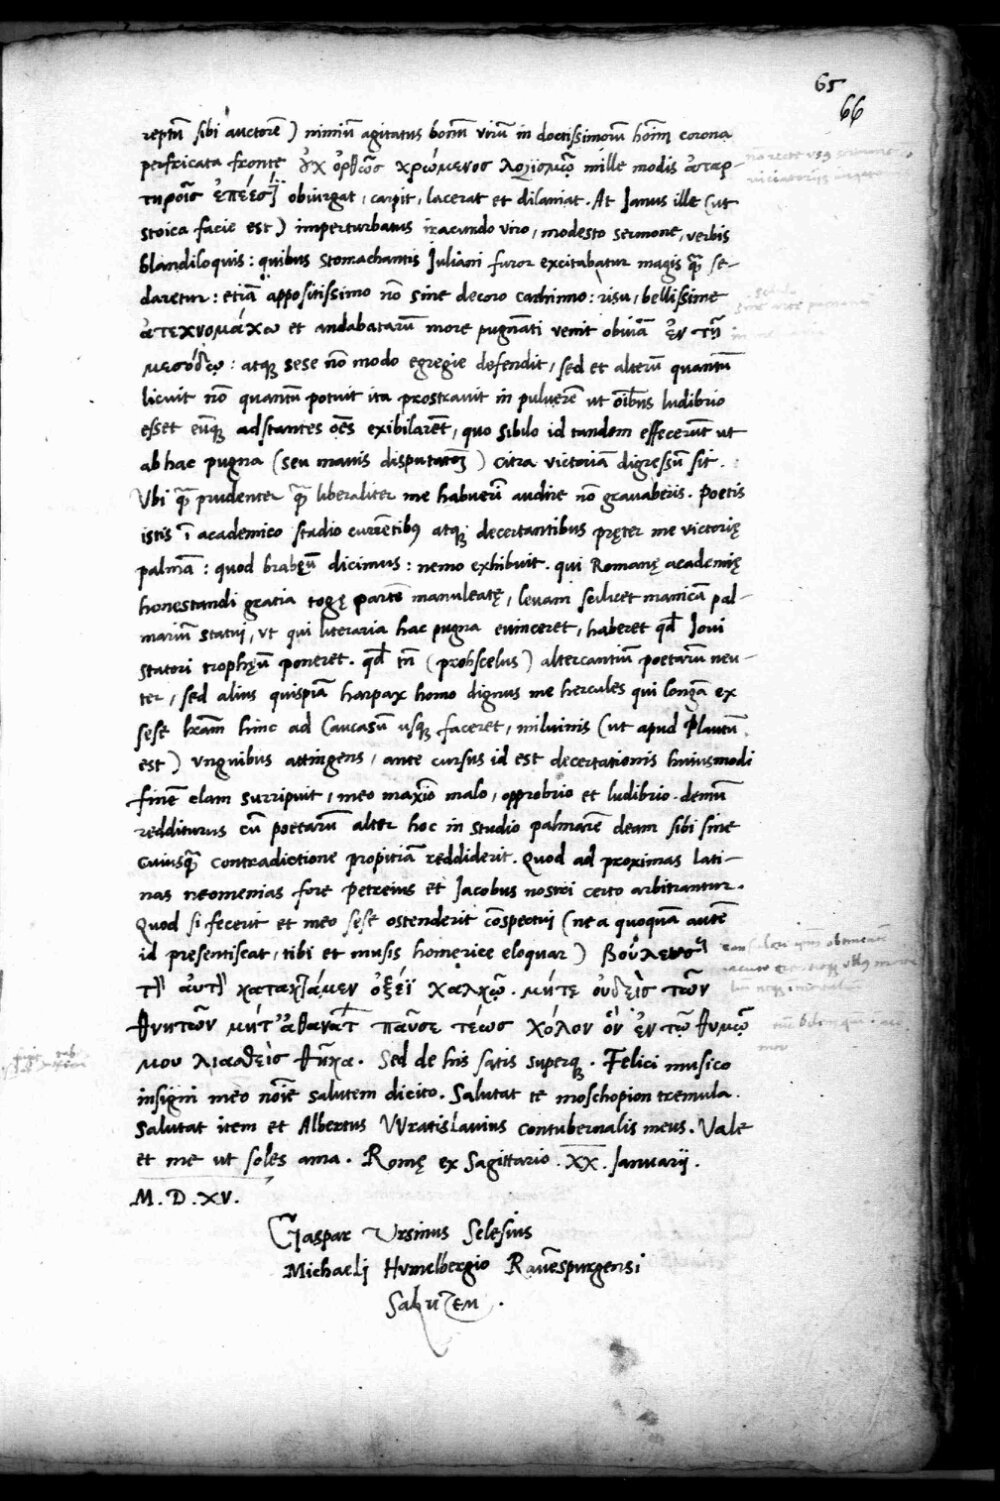 65
66
reptũ sibi auctorẽ) nimiũ agitatus bonũ virũ in doctissimorũ hoĩm corona
perfricata fronte οὐχ ὀρθῶς χρώμενος λογισμῷ mille modis ἀταρ-
τηροῖς ἐπέεσσι obiurgat, carpit, lacerat et dilaniat. At Janus ille (ut
stoica facie est) imperturbatus iracundo viro, modesto sermone, verbis
blandiloquis: quibus stomachantis Juliani furor excitabatur magis quã se-
daretur: etiã appositissimo nõ sine decoro cachinno: risu, bellissime
ἀτεχνομάχῳ et andabatarũ more pugnãti venit obuiã ἐν τῇ
μεσόδῳ: atqꝫ sese nõ modo egregie defendit, sed et alterũ quantũ
licuit nõ quantũ potuit ita prostrauit in puluerẽ ut oĩbus ludibrio
esset eũqꝫ adstantes oẽs exibilarẽt, quo sibilo id tandem effecerũt ut
ab hac pugna (seu mauis disputatõe) citra victoriã digressũ sit.
Vbi quã prudenter quã liberaliter me habuerĩ audire nõ grauaberis. Poetis
istis ĩ academico stadio currẽtibꝰ atqꝫ decertantibus pręter me victorię
palmã: quod brabęũ dicimus: nemo exhibuit. qui Romanę academię
honestandi gratia togę partẽ manuleatę, leuam scilicet manicã pal-
mariũ statui, vt qui literaria hac pugna euinceret, haberet qđ Joui
statori trophęũ poneret. qđ tñ (proh scelus) altercantiũ poetarũ neu-
ter, sed alius quispiã harpax homo dignus me hercules qui longã ex
sese lr̃am hinc ad Caucasũ usqꝫ faceret, miluinis (ut apud Plautũ
est) vnguibus attingens, ante cursus id est decertationis huiusmodi
finẽ clam surripuit, meo maxĩo malo, opprobrio et ludibrio. demũ
redditurus cũ poetarũ alter hoc in studio palmarẽ deam sibi sine
cuiusquã contradictione propitiã reddiderit. Quod ad proximas lati-
nas neomenias fore Petreius et Jacobus nostri certo arbitrantur.
Quod si fecerit et meo sese ostenderit cõspectui (ne a quoquã autẽ
id presentiscat, tibi et musis homęrice eloquar) βουλεύσομαι
αὐτὸν κατακτάμεν ὀξέϊ χαλκῷ. μήτε οὐδεὶς τῶν
θνητῶν μήτ' ἀθανάτων παῦσε τέως χόλον ὃν ἐν τῷ θυμῷ
μου θῆκα. Sed de his satis superqꝫ. Felici musico
insigni meo nõie salutem dicito. Salutat te moschopion tremula.
Salutat item et Albertus VVratislauius contubernalis meus. Vale
et me ut soles ama. Romę ex Sagittario. XX. Januarij.
M. D. XV.
Caspar Vrsinus Selesius
Michaeli Humelbergio Rauẽspurgensi
Salutem.